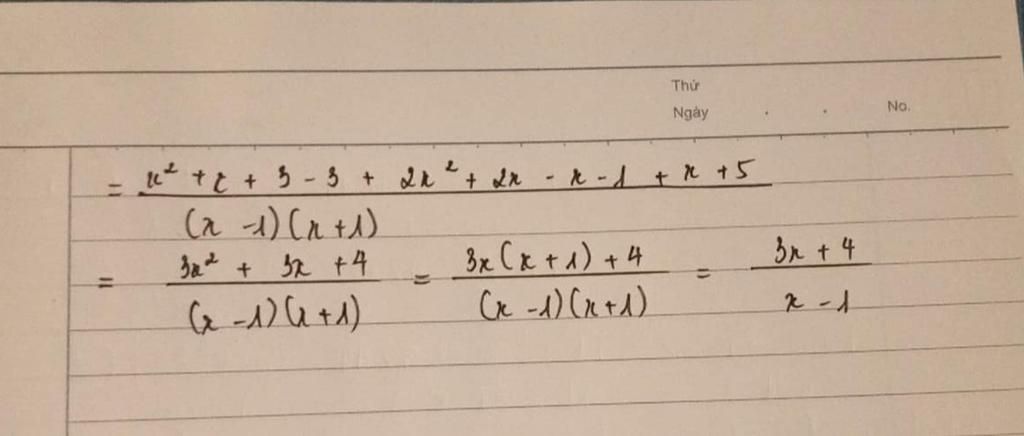 Thứ
Ngày . . No.
= x² + x + 3 - 3 + 2x² + 2x - x - 1 + x + 5 / (x - 1)(x + 1)
= 3x² + 3x + 4 / (x - 1)(x + 1) = 3x(x + 1) + 4 / (x - 1)(x + 1) = 3x + 4 / x - 1